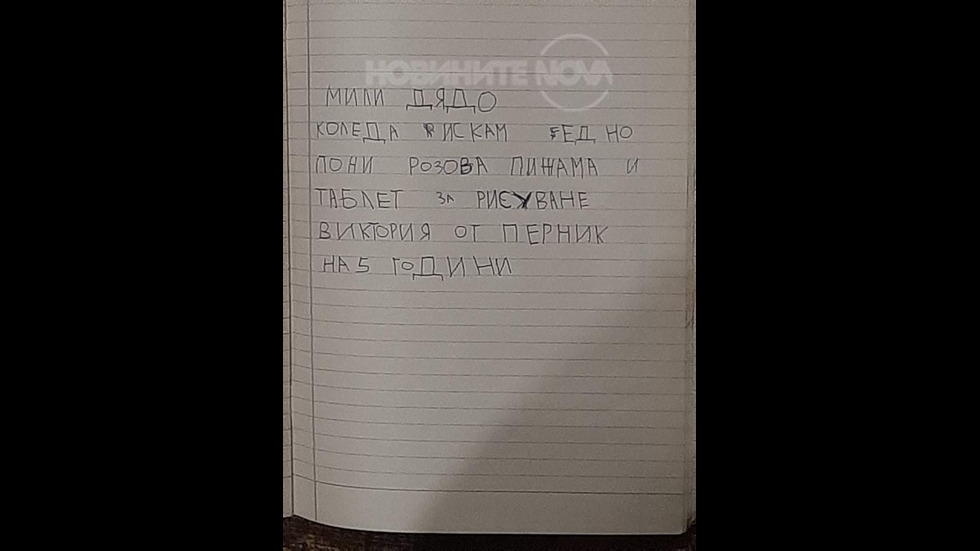 НОВИНИТЕ NOVA
МИЛИ ДЯДО
КОЛЕДА ИСКАМ ЕДНО
ПОНИ РОЗОВА ПИЖАМА И
ТАБЛЕТ ЗА РИСУВАНЕ
ВИКТОРИЯ ОТ ПЕРНИК
НА 5 ГОДИНИ